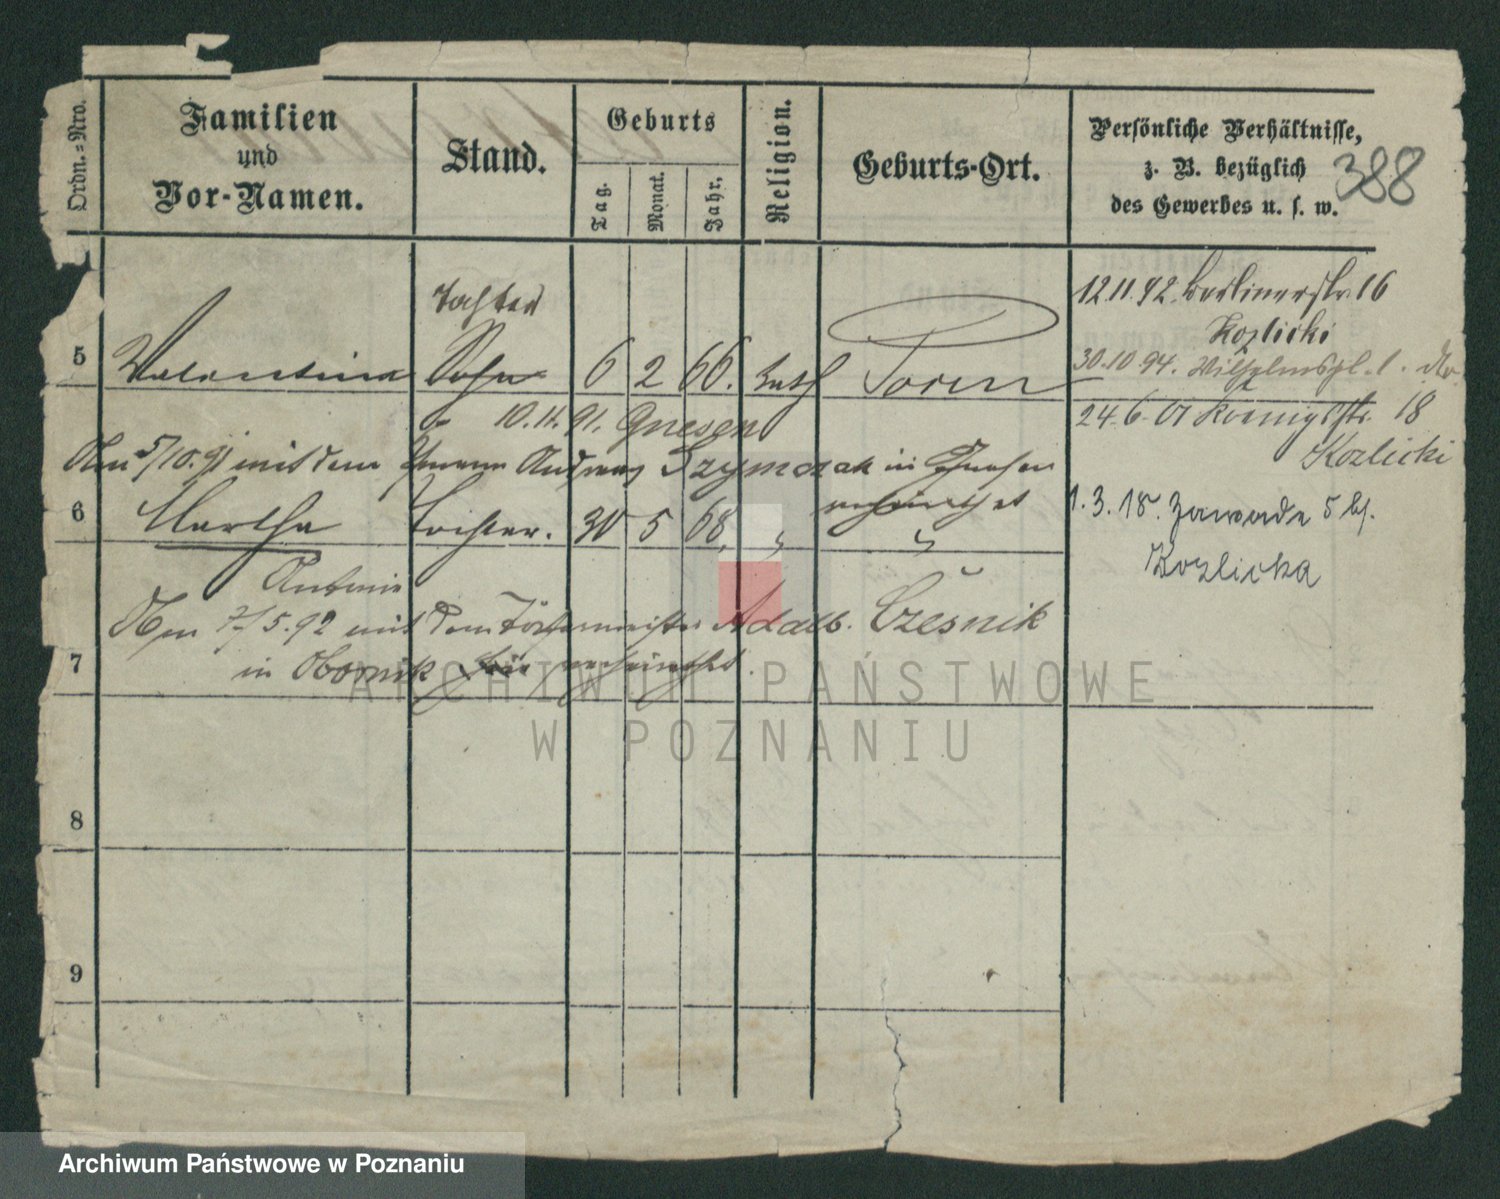 Ordn.=Nro.
Familien
und
Vor-Namen.
Stand.
Geburts
Tag.
Monat.
Jahr.
Religion.
Geburts-Ort.
Persönliche Verhältnisse,
z. B. bezüglich
des Gewerbes u. s. w.
388
Tochter
5 Valentina Sohn 6 2 66. kath Posen
10.11.91. Gnesen
Am 5/10.91 mit dem Andreas Szymczak in Gnesen
verheirathet
6 Martha Tochter. 30 5 68 " "
Antonie
Am 7/5.92 mit dem Töpfermeister Adalb. Czesnik
7 in Obornik verheirathet.
8
9
12.11.92. Berlinerstr. 16
Kozlicki
30.10.94. Wilhelmspl. 1.
24.6.01 Koenigsstr. 18
Kozlicki
1.3.18. Zawade 5 b/.
Kozlicka
ARCHIWUM PAŃSTWOWE
W POZNANIU
Archiwum Państwowe w Poznaniu